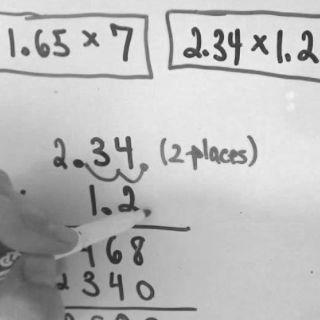 1.65 × 7
2.34 × 1.2
2.34. (2 places)
1.2
468
2340